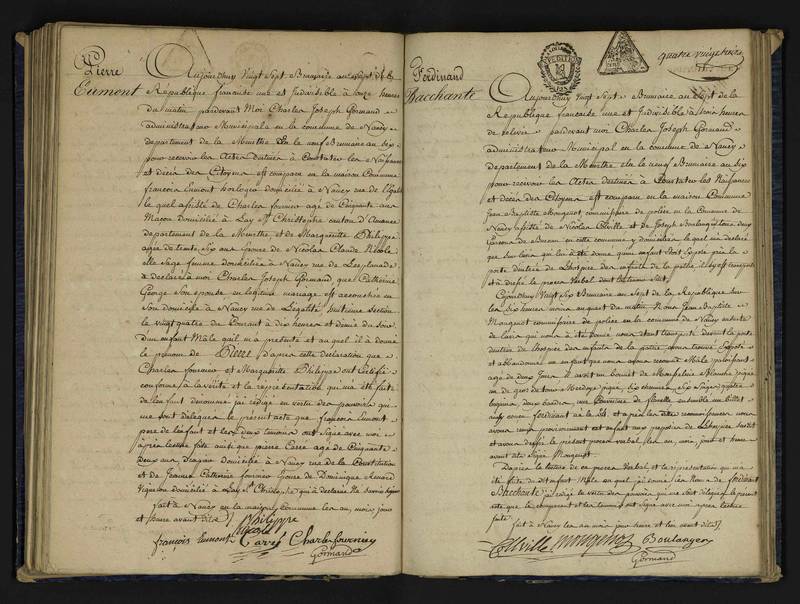 Pierre
Eumont
Aujourdhuy Vingt Sept Brumaire an Sept de la
Republique francaise une et Indivisible à onze heures
Du matin pardevant Moi Charles Joseph Gormand
administrateur Municipal en la commune de Nancy
departement de la Meurthe Elu le neuf Brumaire an Six
pour recevoir les Actes Destinés à Constater les Naissances
et décès des Citoyens est comparu en la maison Commune
francois Eumont horloger domicilié à Nancy rue de l'Egalité
le quel assisté de Charles fournier agé de Cinquante ans
Macon Domicilié à Lay St Christophe canton d'Amance
departement de la Meurthe et de Marguerite Philippe
agée de trente Six ans Epouse de Nicolas Claude Nicole
elle Sage femme domiciliée à Nancy rue de l'esplanade
a déclaré à moi Charles Joseph Gormand, que Catherine
George Son epouse en legitime mariage est accouchée en
Son domicile à Nancy rue de l'egalité huitieme Section
le vingt quatre du Courant à dix heures et demie du Soir
d'un enfant Mâle qu'il m'a presenté et auquel il a donné
le prénom de Pierre, d'apres cette declaration que
Charles fournier et Marguerite Philippe ont Certifié
conforme à la vérité et la représentation qui m'a été faite
de l'enfant denommé j'ai rédigé en vertu des pouvoirs qui
me sont delegués le présent acte que francois Eumont
pere de l'enfant et les deux temoins ont Signé avec moi
après lecture faite ainsi que pierre Carré agé de Cinquante
Deux ans domicilié à Nancy rue de la Constitution
et de Jeanne Catherine fournier Epouse de Dominique
Vigneron domicilié à Lay St Christophe qui a déclaré Ne Savoir Signer
fait à Nancy en la maison commune les an, mois jour
et heure avant dits
Philippe
Nicole
françois Eumont Carré Charle fournier
Gormand
quatre vingt treize
Ferdinand
Bacchante
Aujourdhuy Vingt Sept Brumaire an Sept de la
Republique francaise une et Indivisible à trois heures
de relevée pardevant moi Charles Joseph Gormand
administrateur Municipal en la commune de Nancy
Departement de la Meurthe élu le neuf Brumaire an Six
pour recevoir les Actes destinés à Constater les Naissances
et décès des Citoyens est comparu en la maison Commune
Jean Baptiste Mougnot, commissaire de police en la Commune de
Nancy assisté de Nicolas Colville et de Joseph Boulanger tous deux
Garcons de Bureau en cette commune y demeurans lequel m'a déclaré
que sur l'avis qui lui a été donné qu'un enfant étoit Exposé près la
porte d'entrée de l'hospice des enfants de la patrie, il s'y est transporté
et a dressé le procès Verbal dont la teneur Suit
Cejourdhuy Vingt Six Brumaire an Sept de la Republique Sur
les Six heures moins un quart du matin Nous Jean Baptiste
Mougnot commissaire de police en la commune de Nancy ensuite
de l'avis qui nous a été donné nous etant transporté devant la porte
d'entrée de l'hospice des enfants de la patrie avons trouvé Exposé
et abandonné un enfant que nous avons reconnu Mâle paroissant
agé de deux Jours
avons remis provisoirement cet enfant aux préposés de l'hospice susdit
et avons dressé le présent procès verbal les an, mois, jour et heure
avant dits Signé Mougnot
D'après la lecture de ce procès Verbal et la représentation qui m'a
été faite du dit enfant Mâle au quel j'ai donné les Noms de ferdinand
Bacchante j'ai rédigé en vertu des pouvoirs qui me sont délégués le présent
acte que le comparant et les temoins ont Signé avec moi apres lecture
faite
fait à Nancy les an mois jour heure et lieu avant dits
Colville Mougnot Boulanger
Gormand